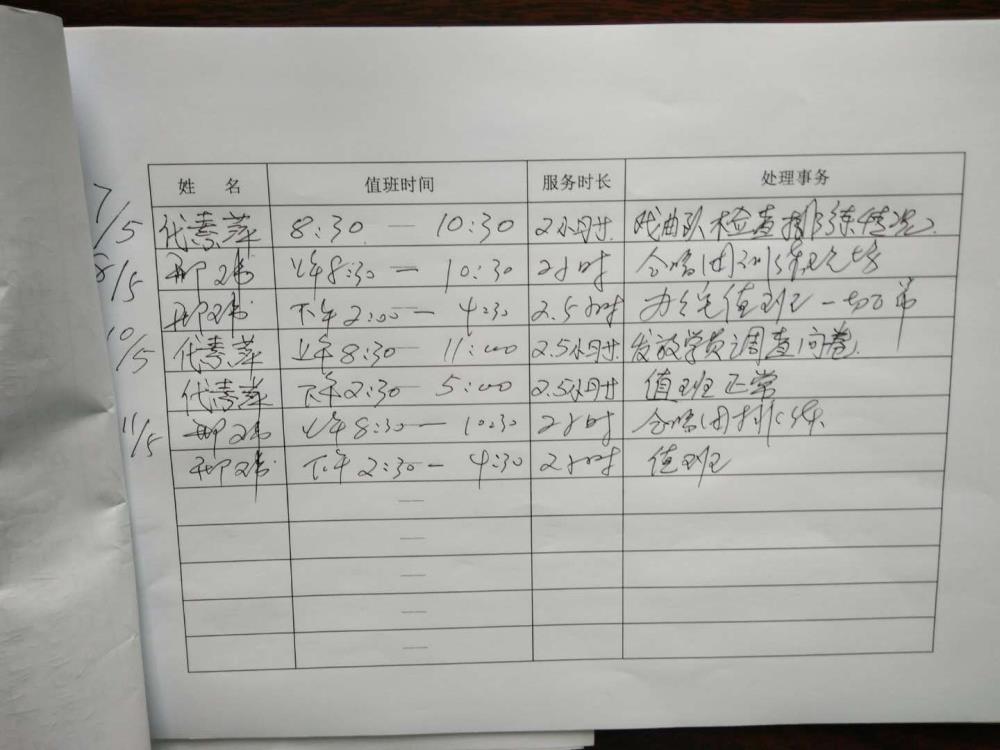 姓 名 值班时间 服务时长 处理事务
7/5 代素萍 8:30 — 10:30 2小时 戏曲队检查排练情况.
8/5 上午8:30 — 10:30 2小时 合唱团训练现场
下午2:00 — 4:30 2.5小时 办公室值班一切正常
10/5 代素萍 上午8:30 — 11:00 2.5小时. 发放学员调查问卷.
代素萍 下午2:30 — 5:00 2.5小时 值班正常
11/5 上午8:30 — 10:30 2小时 合唱团排练.
下午2:30 — 4:30 2小时 值班
—
—
—
—
—